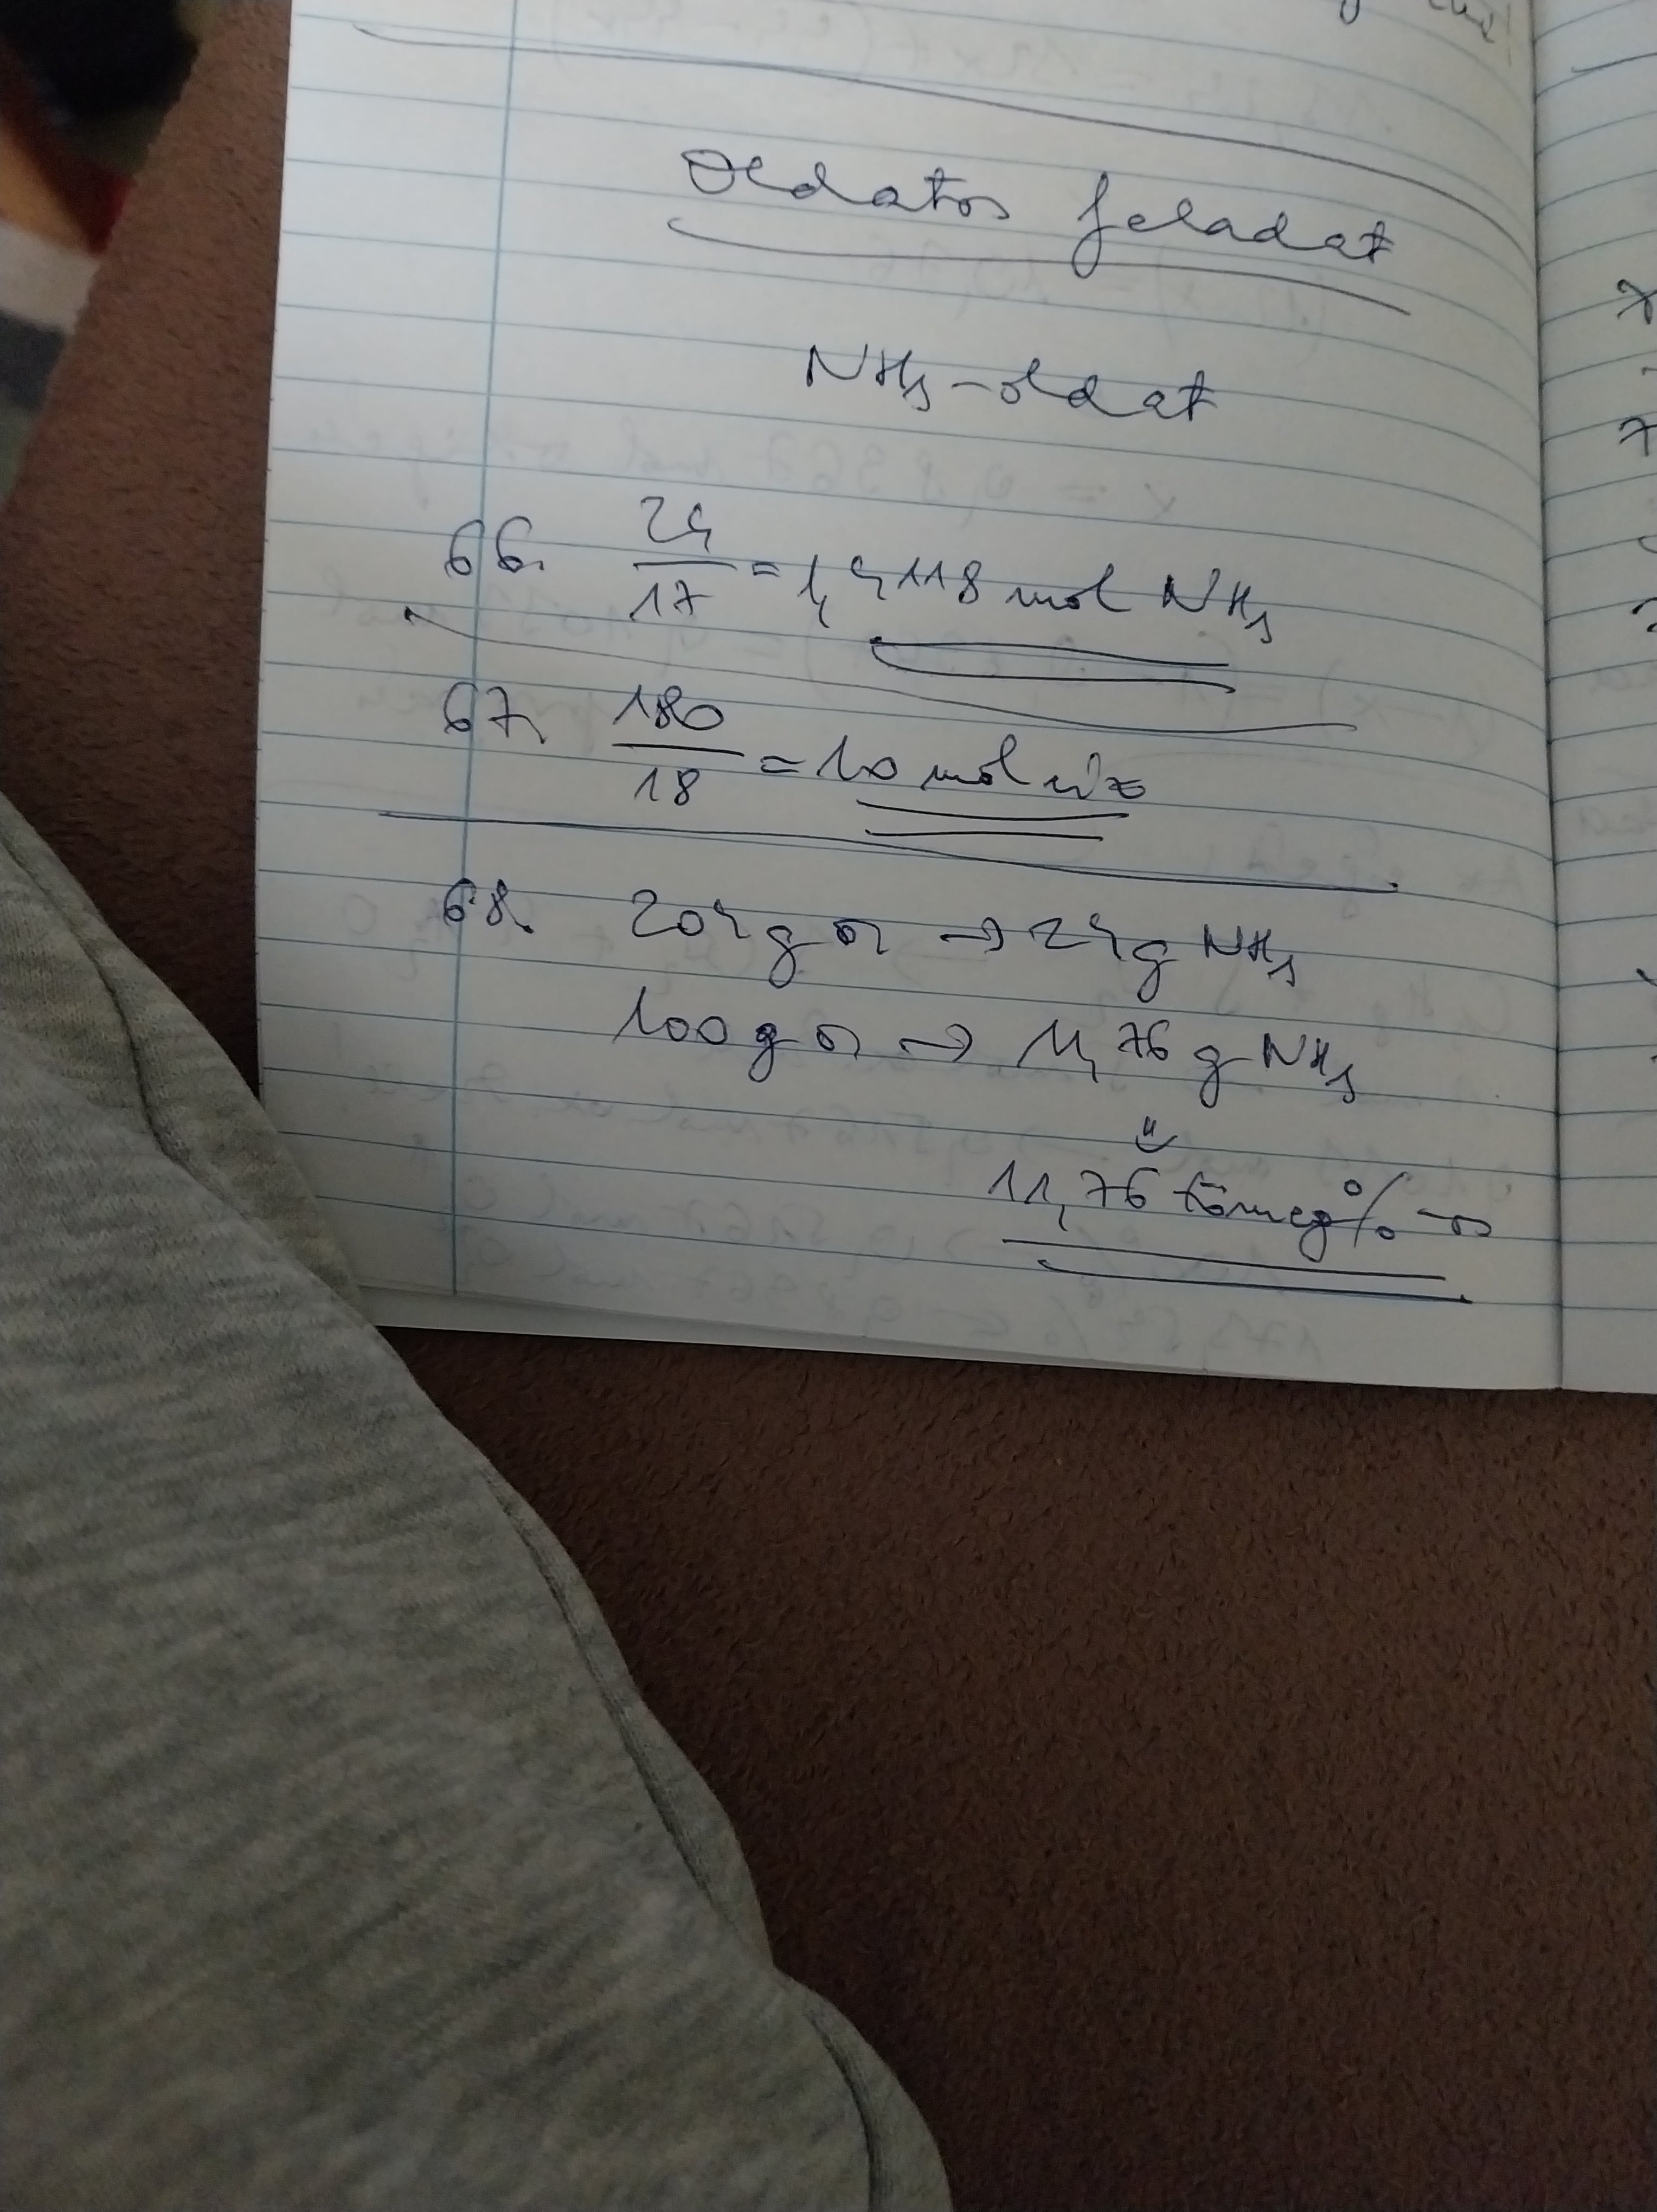 Oldatos feladat
NH3-oldat
66. 24/17 = 1,4118 mol NH3
67. 180/18 = 10 mol víz
68. 204 g o. → 24 g NH3
100 g o. → 11,76 g NH3
⇓
11,76 tömeg%-os